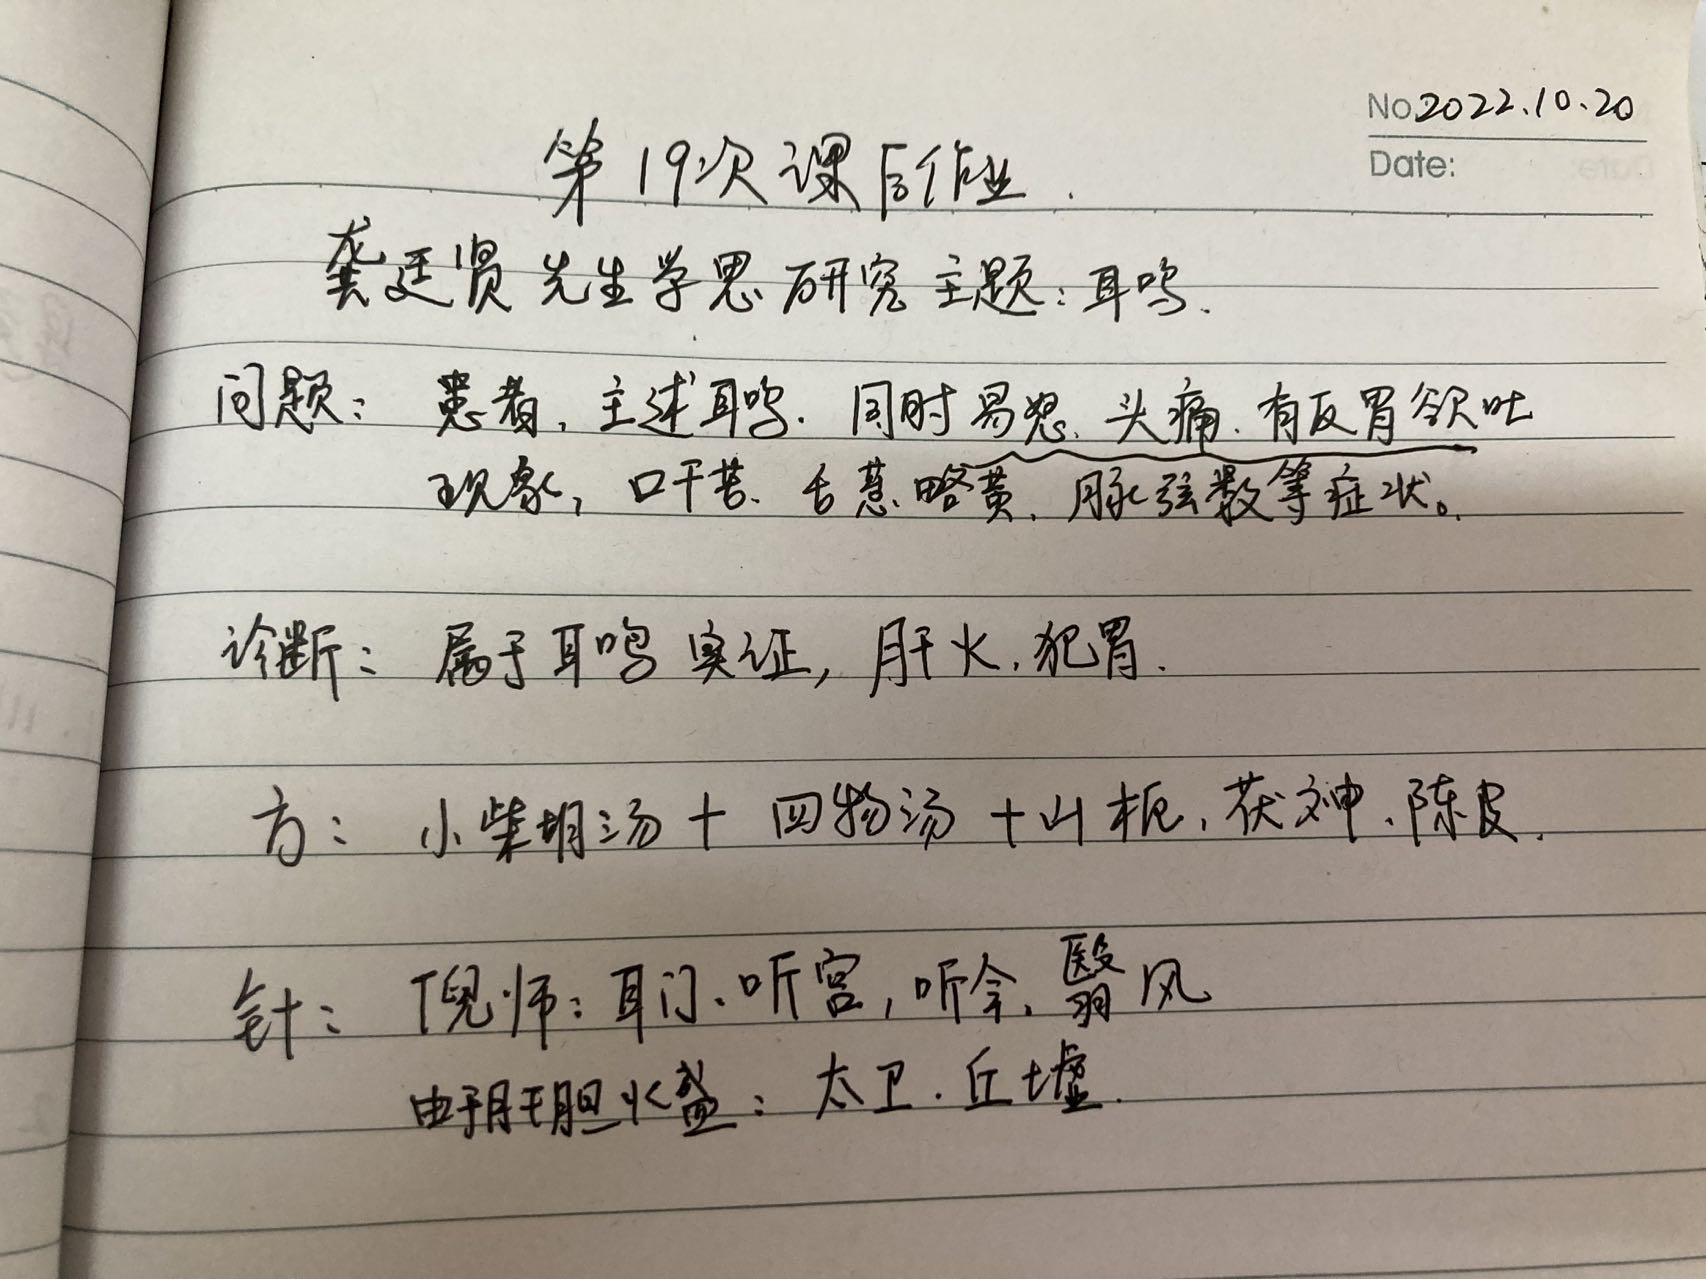 No 2022.10.20
Date:
第19次课后作业.
龚廷贤先生学思研究主题:耳鸣.
问题: 患者,主述耳鸣.同时易怒、头痛、有反胃欲吐
现象,口干苦、舌薏略黄、脉弦数等症状。
诊断: 属于耳鸣实证,肝火、犯胃.
方: 小柴胡汤+四物汤+山栀、茯神、陈皮.
针: 倪师:耳门、听宫,听会、翳风
由于肝胆火盛:太卫、丘墟.